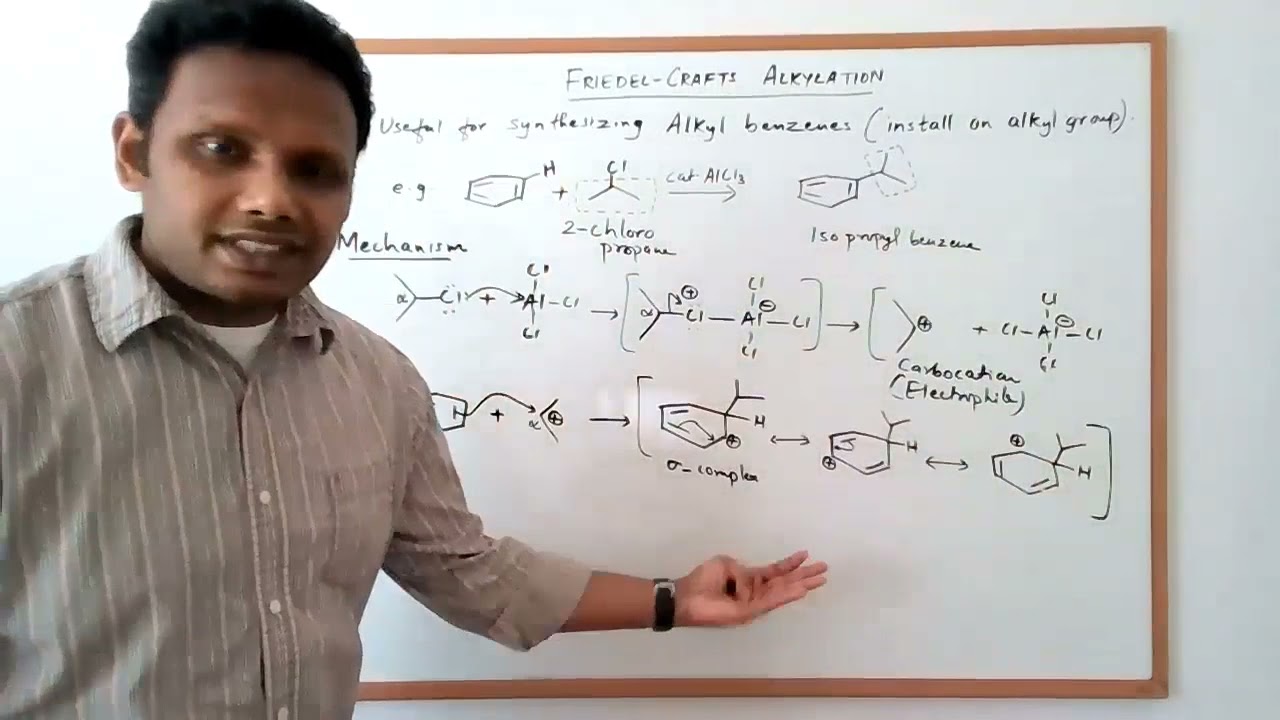 FRIEDEL-CRAFTS ALKYLATION
Useful for synthesizing Alkyl benzenes (install an alkyl group).
e.g. H + Cl cat AlCl3
2-chloro propane
Isopropyl benzene
Mechanism
Cl Cl Cl
α Cl + Al-Cl → [ α ⊕ Cl — Al ⊖ — Cl ] → [ ⊕ + Cl-Al ⊖ -Cl
Cl Cl Cl
Carbocation
(Electrophile)
H + α ⊕ → [ H ⊕ ↔ ⊕ H ↔ ⊕ H ]
σ-complex